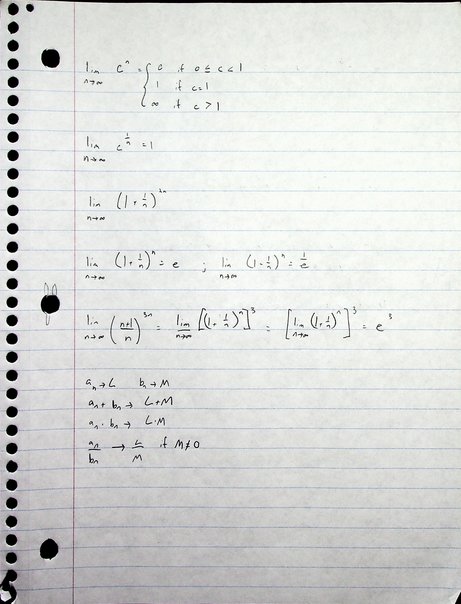 lim n→∞ cⁿ = { 0 if 0 ≤ c < 1
1 if c=1
∞ if c > 1
lim n→∞ c^(1/n) = 1
lim n→∞ (1 + 1/n)^(2n)
lim n→∞ (1 + 1/n)ⁿ = e ; lim n→∞ (1 - 1/n)ⁿ = 1/e
lim n→∞ ((n+1)/n)^(3n) = lim n→∞ [(1 + 1/n)ⁿ]³ = [lim n→∞ (1 + 1/n)ⁿ]³ = e³
aₙ → L bₙ → M
aₙ + bₙ → L + M
aₙ · bₙ → L · M
aₙ/bₙ → L/M if M ≠ 0